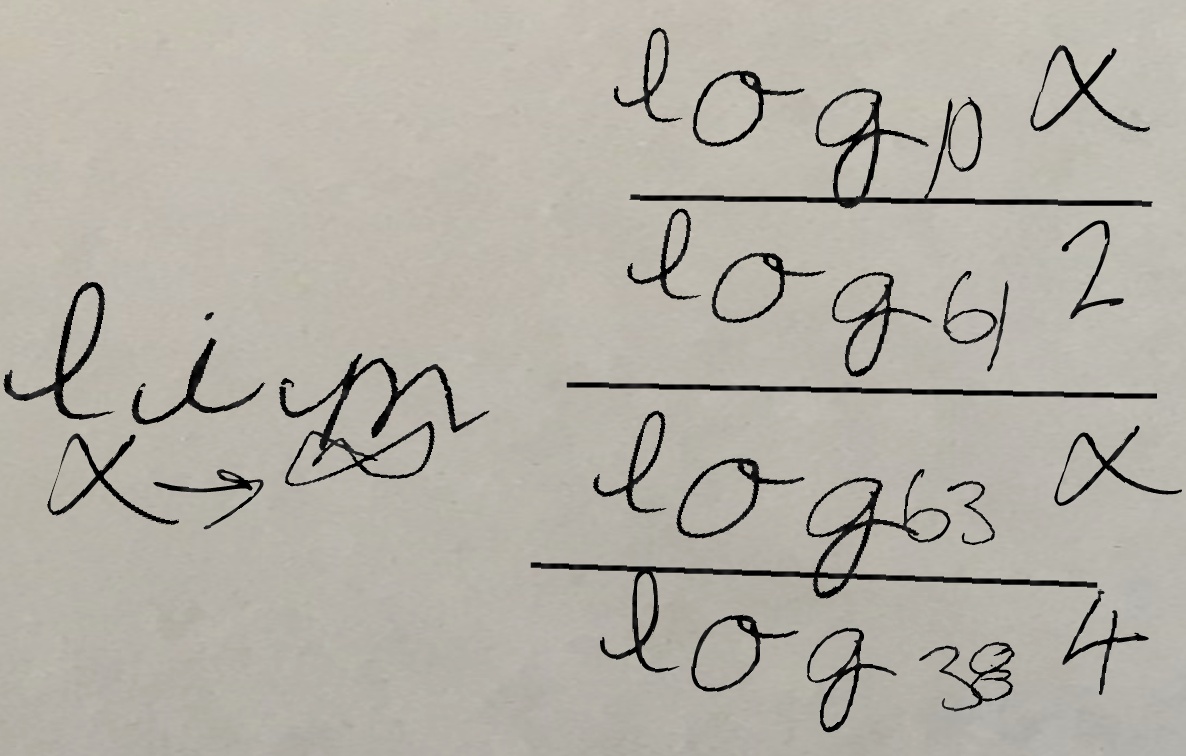 lim x→∞ \frac{\frac{log_{10} x}{log_{61} 2}}{\frac{log_{63} x}{log_{38} 4}}